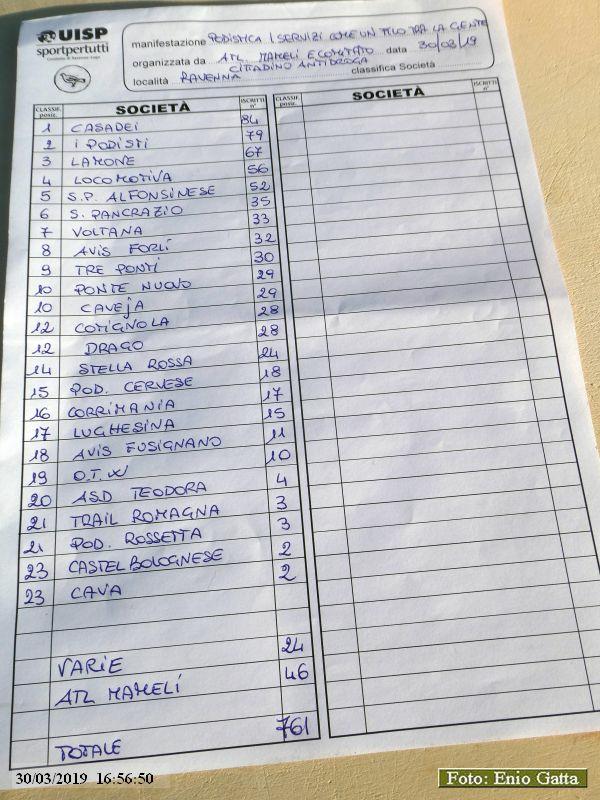 UISP
sportpertutti
manifestazione PODISTICA I SERVIZI COME UN FILO TRA LA GENTE
organizzata da ATL. MAMELI E COMITATO data 30/03/19
CITTADINO ANTIDROGA
località RAVENNA classifica Società
CLASSIF. posiz. SOCIETÀ ISCRITTI n° CLASSIF. posiz. SOCIETÀ ISCRITTI n°
1 CASADEI 84
2 I PODISTI 79
3 LAMONE 67
4 LOCOMOTIVA 56
5 S.P. ALFONSINESE 52
6 S. PANCRAZIO 35
7 VOLTANA 33
8 AVIS FORLÌ 32
9 TRE PONTI 30
10 PONTE NUOVO 29
10 CAVEJA 29
12 COTIGNOLA 28
12 DRAGO 28
14 STELLA ROSSA 24
15 POD. CERVESE 18
16 CORRIMANIA 17
17 LUGHESINA 15
18 AVIS FUSIGNANO 11
19 O.T.W 10
20 ASD TEODORA 4
21 TRAIL ROMAGNA 3
21 POD. ROSSETTA 3
23 CASTELBOLOGNESE 2
23 CAVA 2
VARIE 24
ATL MAMELI 46
TOTALE 761
30/03/2019 16:56:50
Foto: Enio Gatta